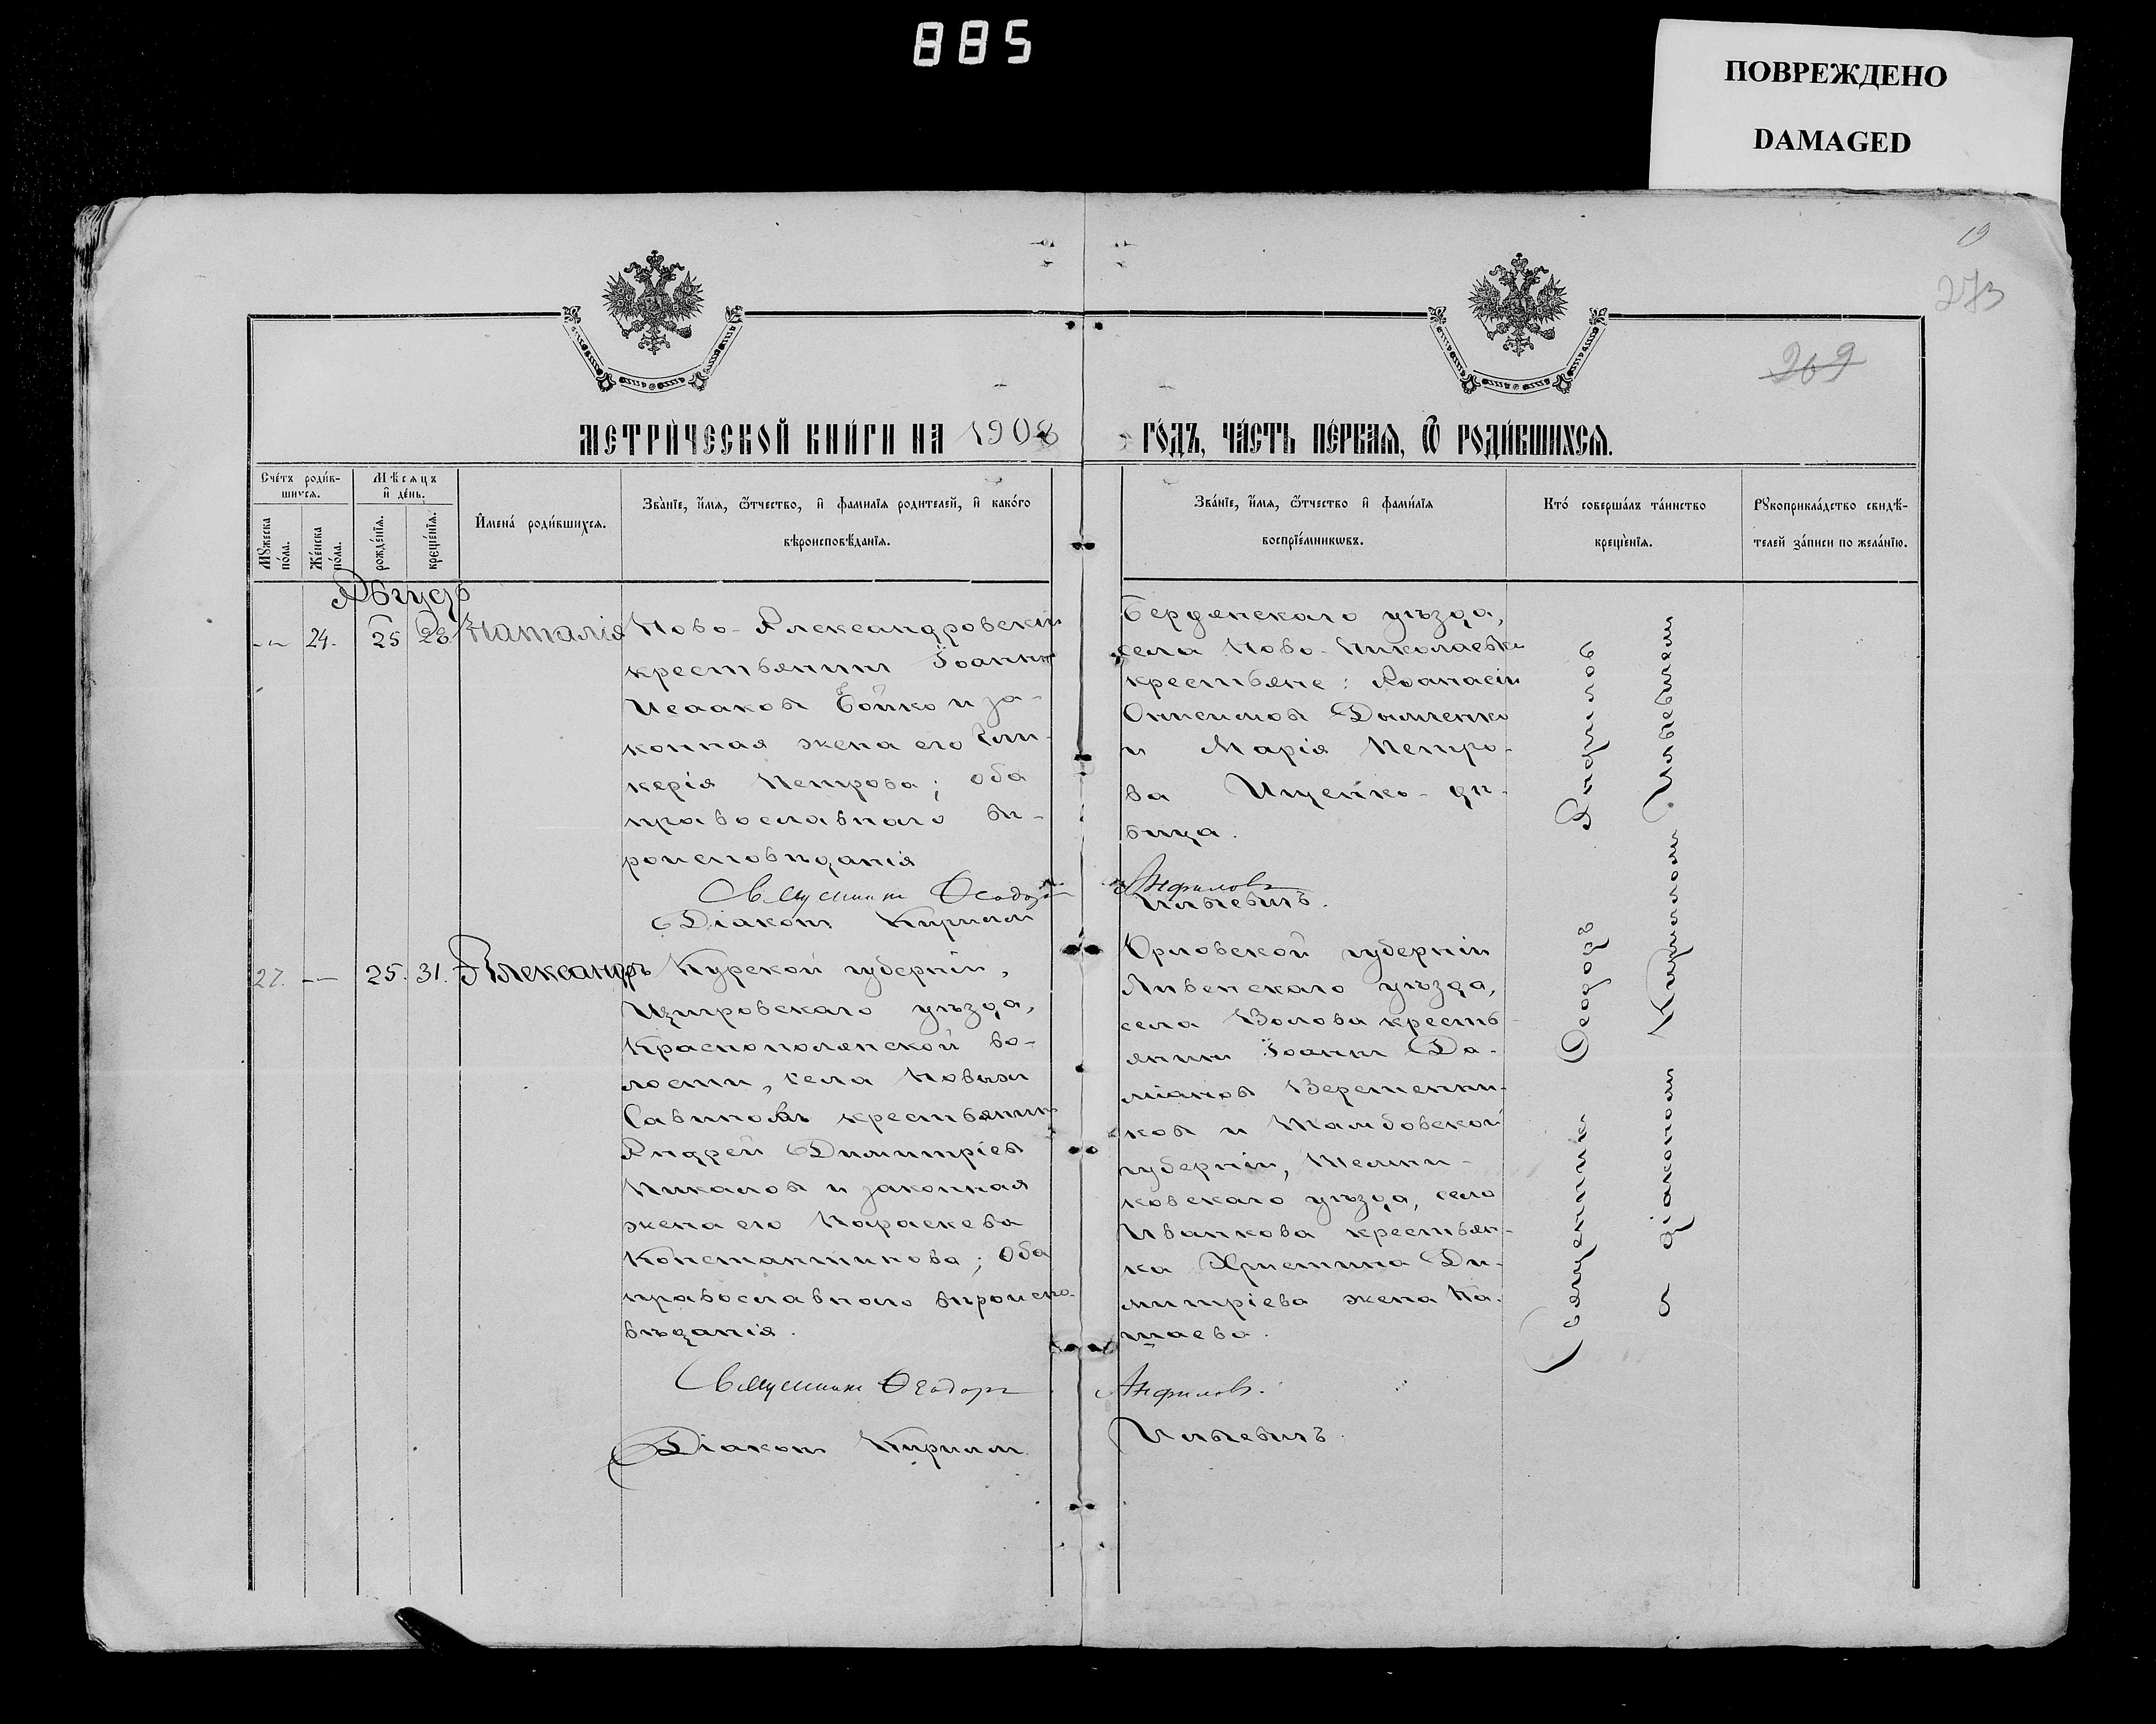 885
ПОВРЕЖДЕНО
DAMAGED
19
273
269
МЕТРИ́ЧЕСКОЙ КНИ́ГИ НА 1908 ГО́ДЪ, ЧА́СТЬ ПЕ́РВАѦ, Ѿ РОДИ́ВШИХСѦ.
Сче́тъ роди́в-
шихся.
Мѣ́сяцъ
и҆ де́нь.
Мꙋ́жеска
по́ла.
Же́нска
по́ла.
рожде́нїя.
креще́нїя.
И҆мена́ роди́вшихся.
Зва́нїе, и҆́мя, ѻ҆́тчество, и҆ фами́лїя родителей, и҆ како́го
вѣроисповѣ́данїя.
Зва́нїе, и҆́мя, ѻ҆́тчество и҆ фами́лїя
воспрїе́мникѡвъ.
Кто́ соверша́лъ та́инство
креще́нїя.
Рꙋкоприкла́дство свидѣ́-
телей за́писи по жела́нїю.
Августъ
-"- 24. 25 28 Наталія
Ново-Александровскій
крестьянинъ Іоаннъ
Исааковъ Бойко и за-
конная жена его Гли-
керія Петрова; оба
православнаго вѣ-
роисповѣданія
Священникъ Ѳеодоръ Анфиловъ
Діаконъ Кириллъ Ильевичъ.
Бердянскаго уѣзда,
села Ново-Николаевки
крестьяне: Аѳанасій
Онисимовъ Дымченко
и Марія Петро-
ва Ищенко-дѣ-
вица.
27. -"- 25. 31. Александръ
Курской губерніи,
Щигровскаго уѣзда,
Краснополянской во-
лости, села Новыхъ
Савиновъ крестьянинъ
Андрей Димитріевъ
Пикаловъ и законная
жена его Параскева
Константинова; оба
православнаго вѣроиспо-
вѣданія.
Священникъ Ѳеодоръ Анфиловъ.
Діаконъ Кириллъ Ильевичъ.
Орловской губерніи
Ливенскаго уѣзда,
села Волова кресть-
янинъ Іоаннъ Да-
міановъ Веретенни-
ковъ и Тамбовской
губерніи, Темни-
ковскаго уѣзда, село
Иванкова крестьян-
ка Христина Ди-
митріева жена
Священникъ Ѳеодоръ Анфиловъ
и діакономъ Кирилломъ Ильевичемъ